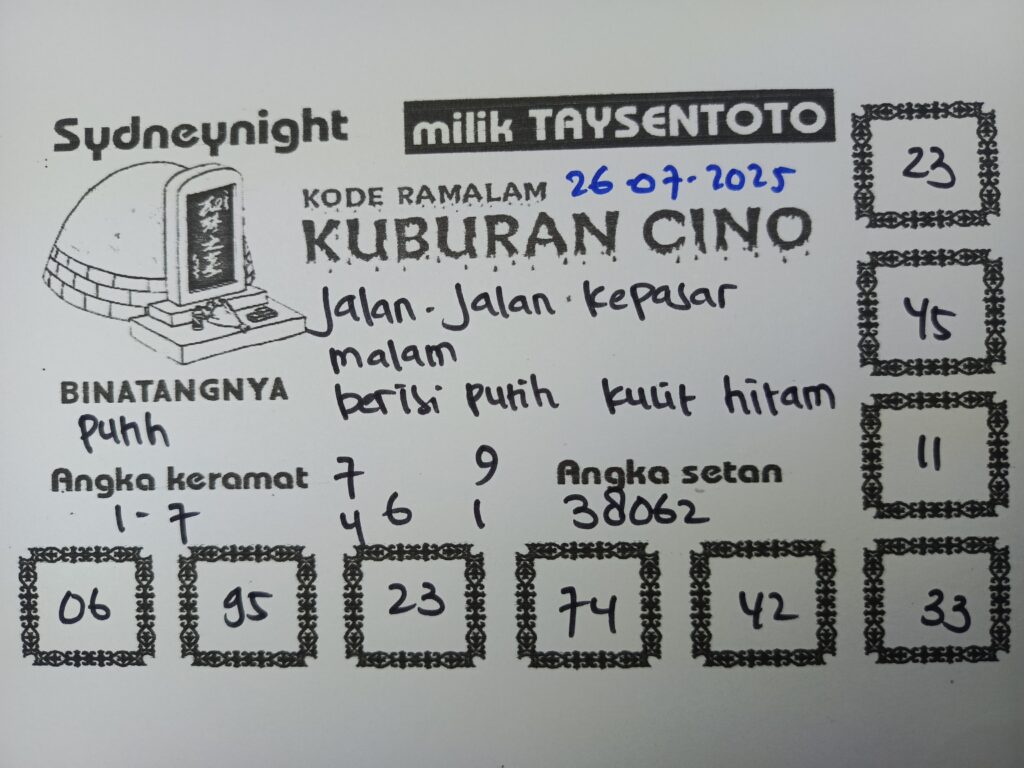 Sydneynight
milik TAYSENTOTO
KODE RAMALAM 26-07-2025
KUBURAN CINO
Jalan-Jalan. kepasar
malam
berisi putih kulit hitam
BINATANGNYA
Putih
Angka keramat
1-7
7 9
4 6 1
Angka setan
38062
23
45
11
06 95 23 74 42 33